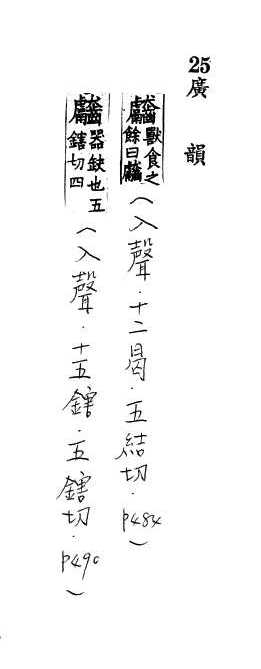 25 廣韻
齾獸食之餘曰齾(入聲.十二曷.五結切.p484)
齾器缺也五鎋切四(入聲.十五鎋.五鎋切.p490)